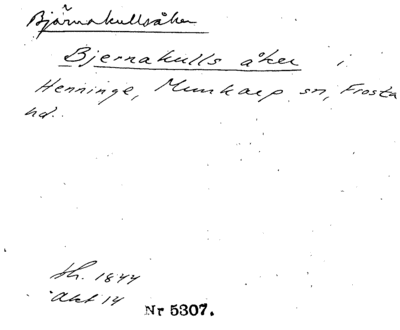 Bjärnakullsåker
Bjernakulls åker i
Henninge, Munkarp sn, Frosta
hd.
sk. 1844
akt 14
Nr 5307.